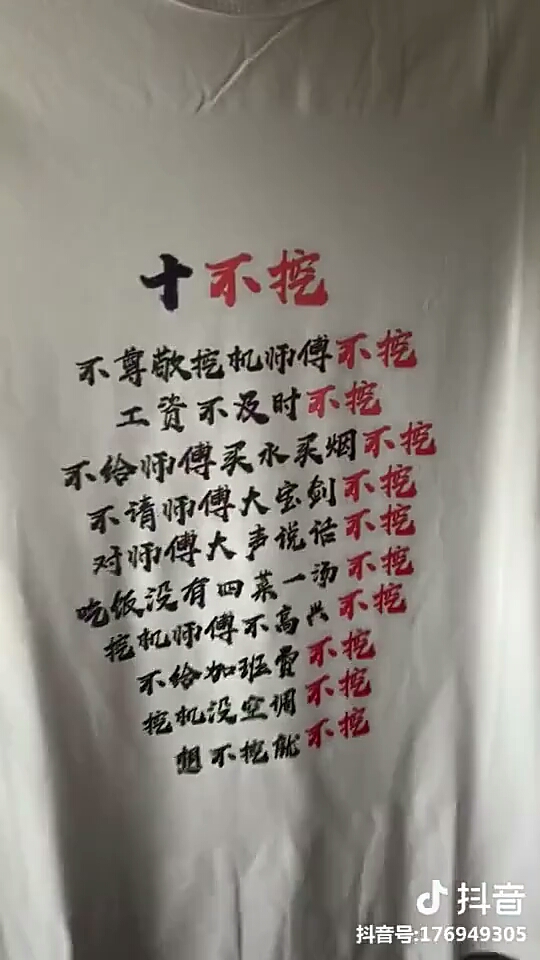 十不挖
不尊敬挖机师傅不挖
工资不及时不挖
不给师傅买水买烟不挖
不请师傅大宝剑不挖
对师傅大声说话不挖
吃饭没有四菜一汤不挖
挖机师傅不高兴不挖
不给加班费不挖
挖机没空调不挖
想不挖就不挖
抖音
抖音号:176949305